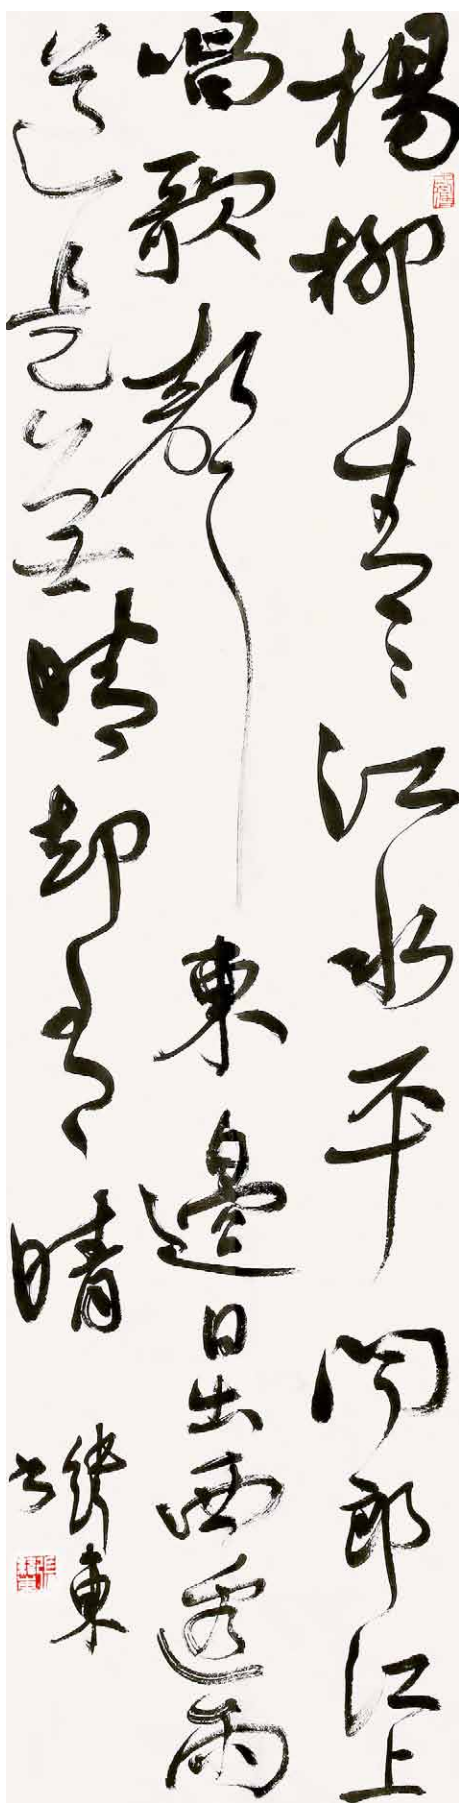 楊柳青々江水平聞郎江上
唱歌聲東邊日出西邊雨
道是無晴却有晴
繼東
书